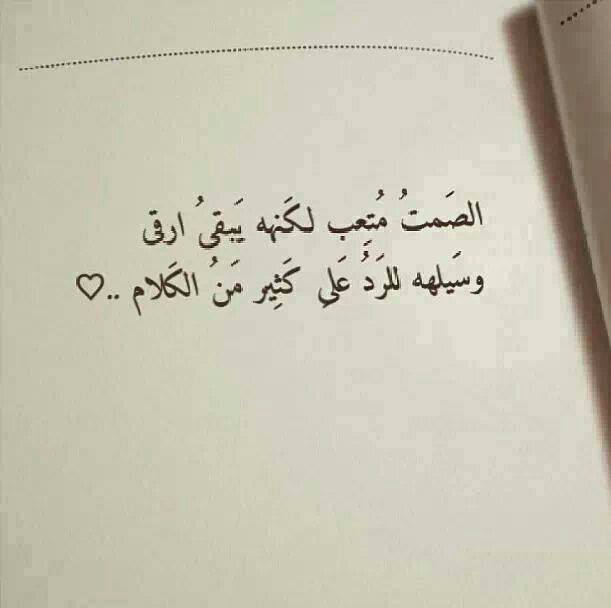 الصَمتُ مُتعِب لكَنهه يَبقىُ ارقى
وسَيلهه للرَدُ عَلىِ كَثِير مَنُ الكَلام ..♡